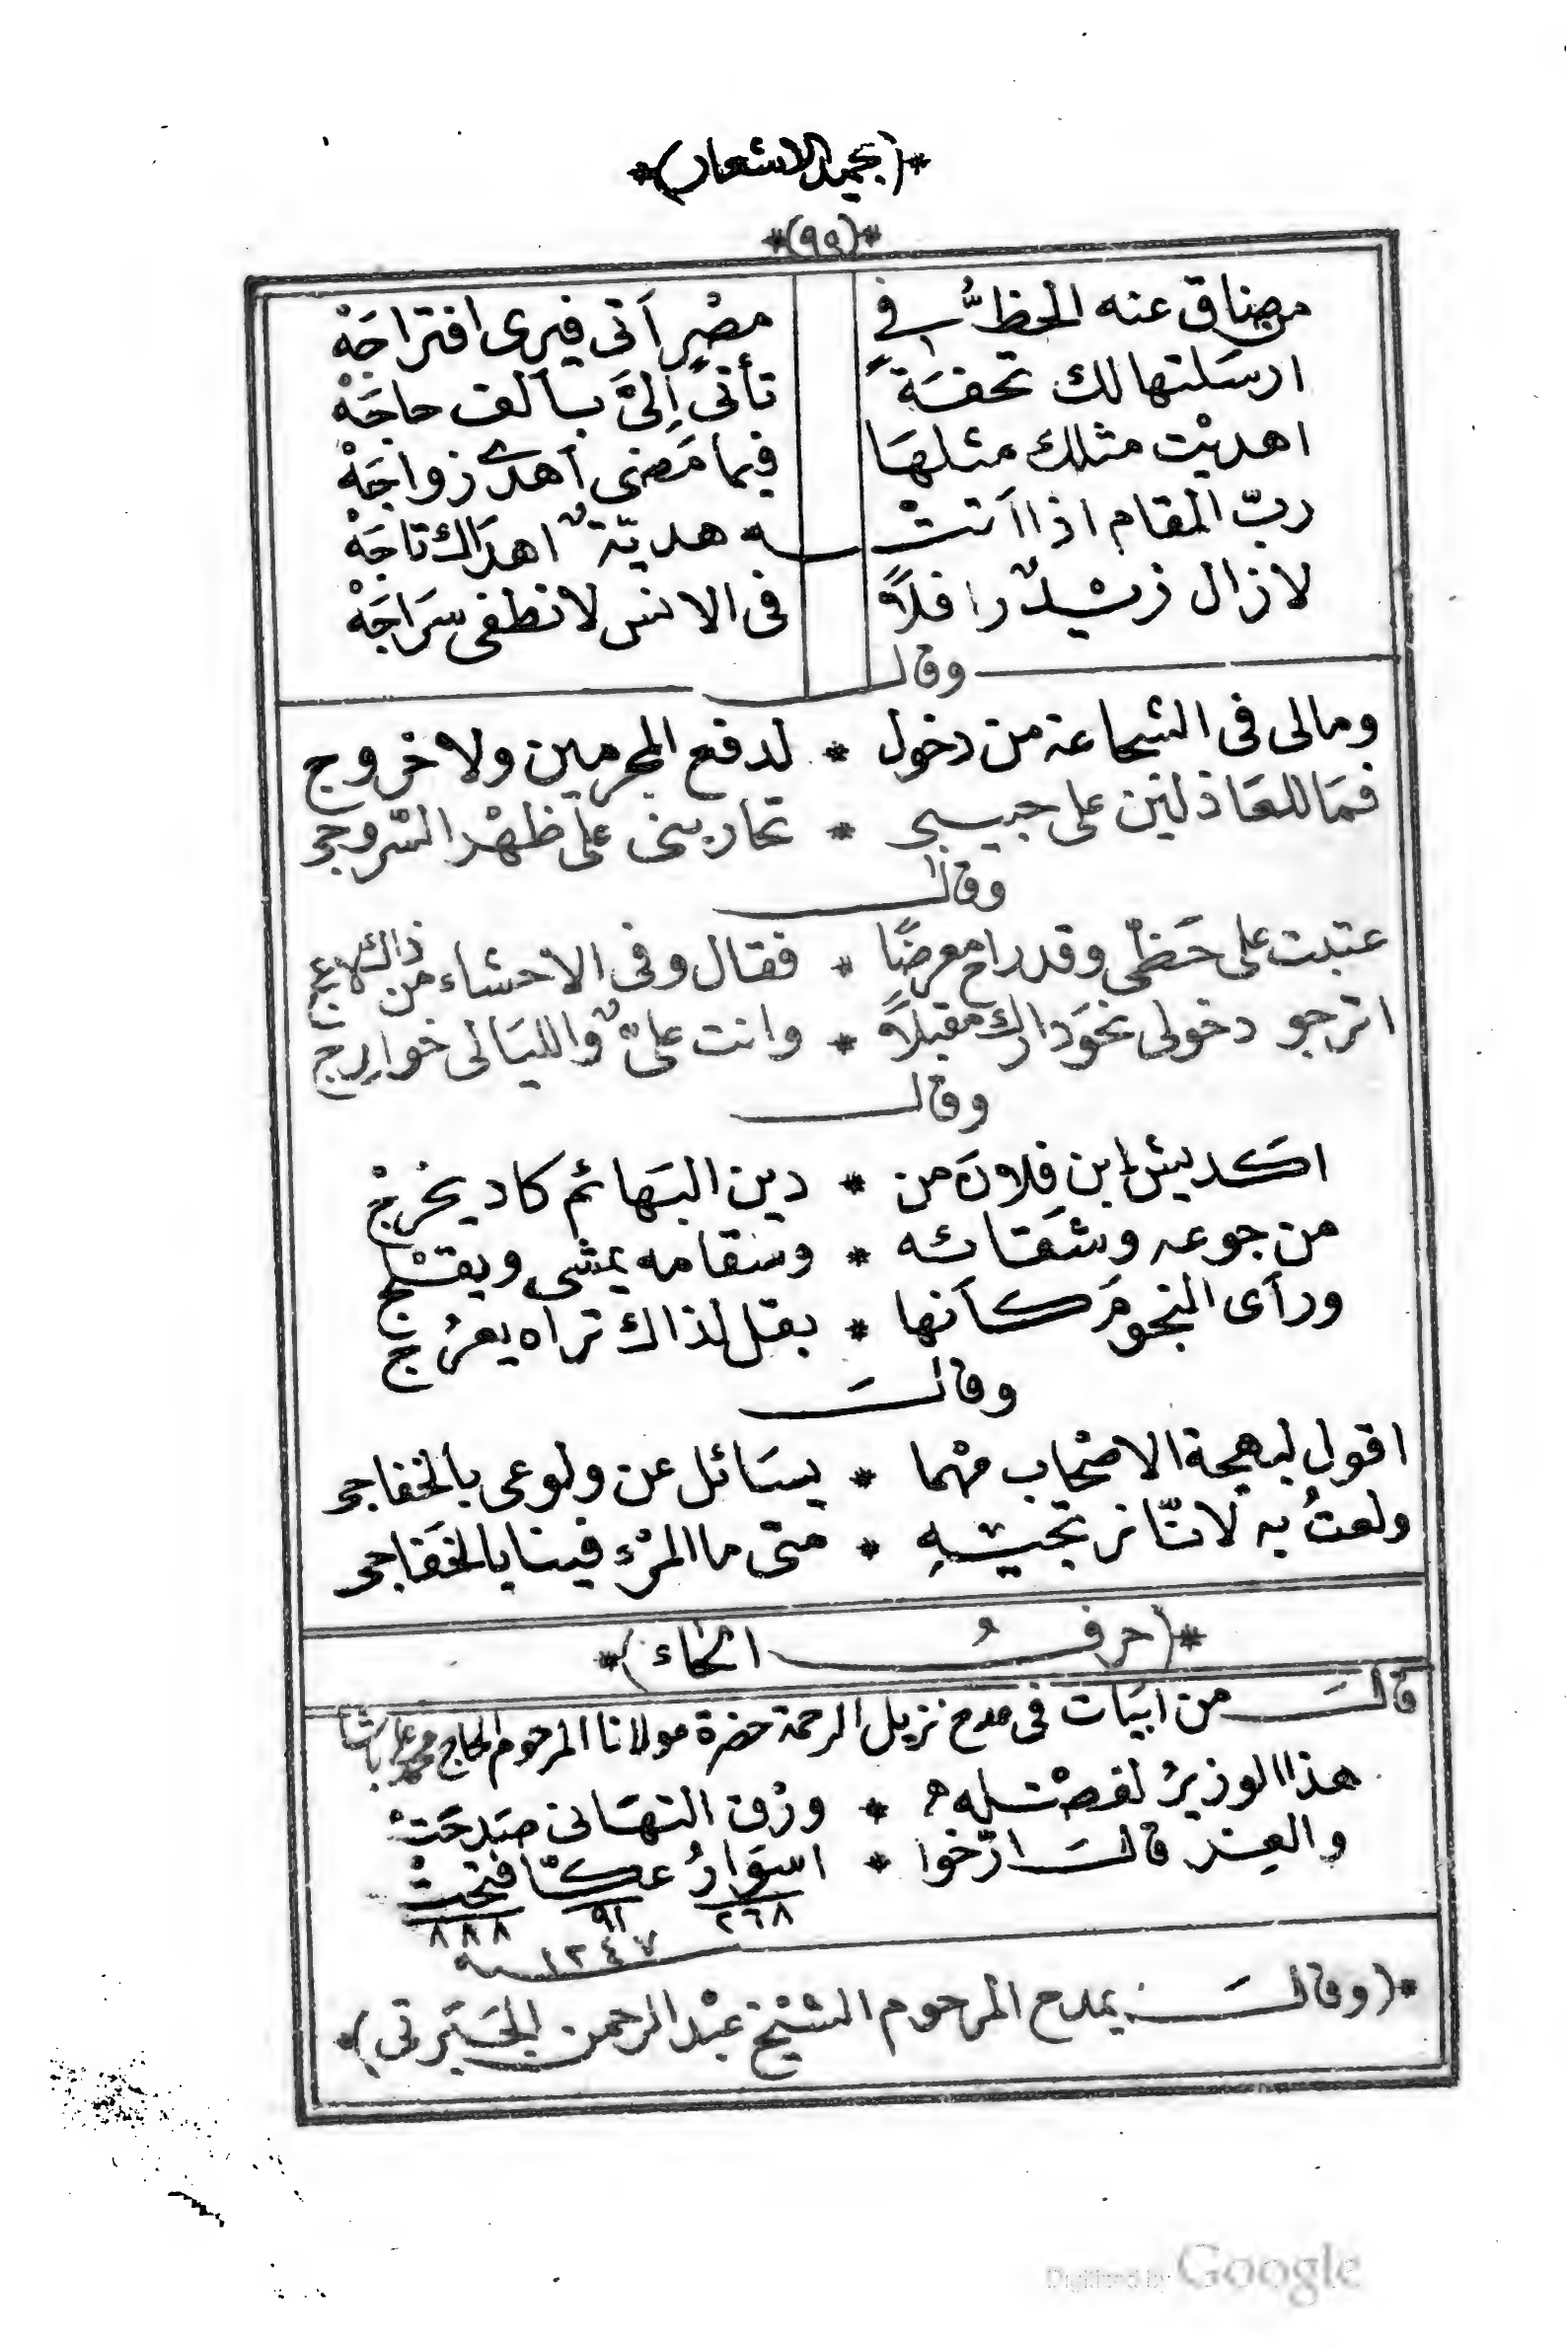 *(بحميد الاشعار)*
*(٩٤)*
من ضاق عنه الحظُّ في مصْرٍ اَتى فيرى افتراجَهْ
ارسَلتها لك تحفَةً تأتى اِلىَّ بألف حاجَهْ
اهديْت مثلك مثلهَا فيما مَضى اَهدى زواجَهْ
ربّ المقام اذا اَتتْـه هديّةٌ اهدَاك تاجَهْ
لازال رافلاً فى الانس لا تطفى سرَاجَهْ
وقال
ومالى فى الشجاعة من دخول * لدفع المجرمين ولا خروج
فمَا للعَاذليْن على حبيبى * تحاربنى على ظهْر السّروجى
وقال
عتبت على حَظّى وقد راح معرضًا * فقال وفى الاحشاء من ذاك لاعج
اترجو دخولى نحوَ دارك مقبلاً * وانت علىٌّ والليَالى خوارِج
وقال
اكَديش ابن فلاَن من * دين البَهائم كاد يخْرجْ
من جوعه وشقَائه * وسقامه يمشى ويفشْج
ورأى النجومَ كأنها * بقل لذاك تراه يعرُج
وقالَ
اقول لبهجة الاصْحاب مهْما * يسَائل عن ولوعى بالخفاجى
ولعتُ به لانّا نرتجيْهِ * متى ما المرْء فينا بالخَفَاجى
*(حرفُ الحاء)*
قالَ من ابيَات فى مدح نزيل الرحمة حضرة مولانا المرحوم الحاج محمد على باشا
هذا الوزيرُ لفضْله * ورْق التهَانى صَدحَتْ
والعِز قالَ ارّخوا * اسوَارُ عكّا فتحَتْ
٢٦٨ ٩١ ٨٨٨
١٢٤٧ سنه
*(وقالَ يمدح المرحوم الشيْخ عبْد الرحمن الجَبَرتى)*
Digitized by Google